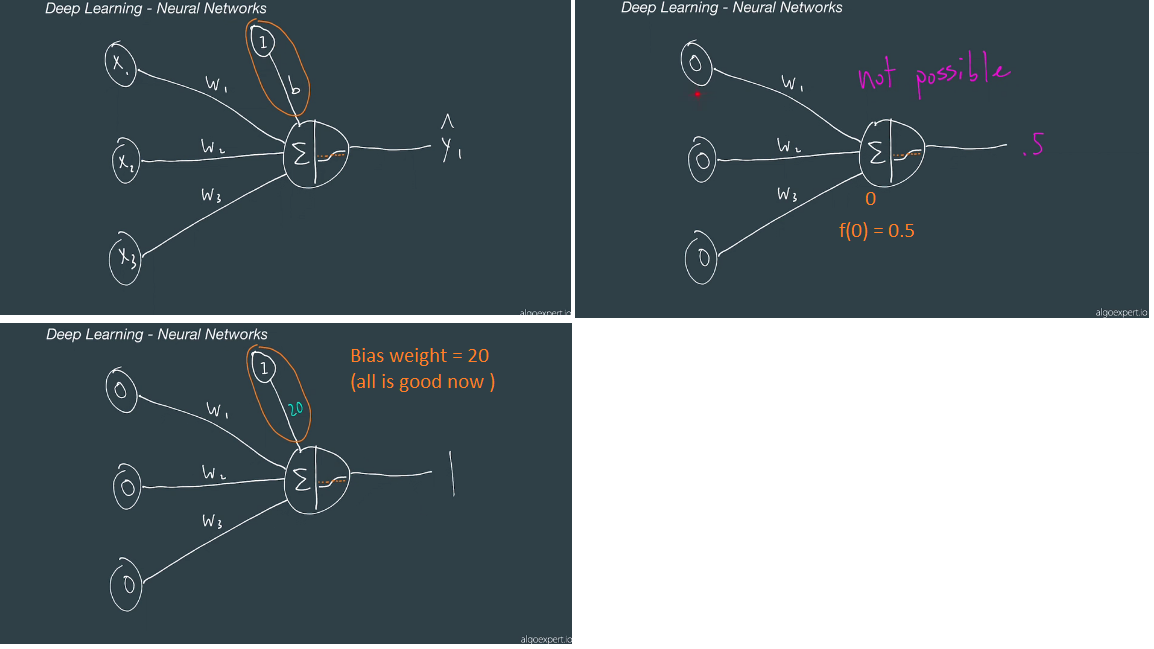 Deep Learning - Neural Networks
1
X₁
W₁
b
X₂
W₂
Σ
Ŷ₁
W₃
X₃
algoexpert.io
Deep Learning - Neural Networks
0
W₁
not possible
0
W₂
Σ
.5
W₃
0
f(0) = 0.5
0
algoexpert.io
Deep Learning - Neural Networks
1
Bias weight = 20
(all is good now )
0
20
W₁
0
W₂
Σ
1
W₃
0
algoexpert.io